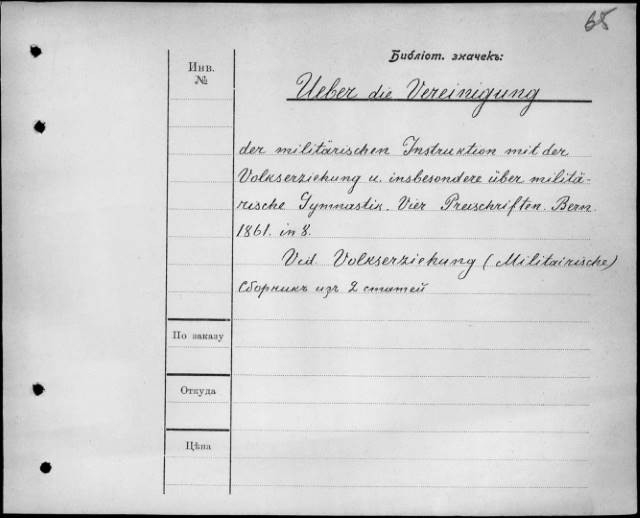 65
Библіот. значекъ:
Инв.
№
Ueber die Vereinigung
der militärischen Instruktion mit der
Volkserziehung u. insbesondere über militä-
rische Gymnastik. Vier Preisschriften. Bern.
1861. in 8.
Vid. Volkserziehung (Militairische)
Сборникъ изъ 2 статей
По заказу
Откуда
Цѣна